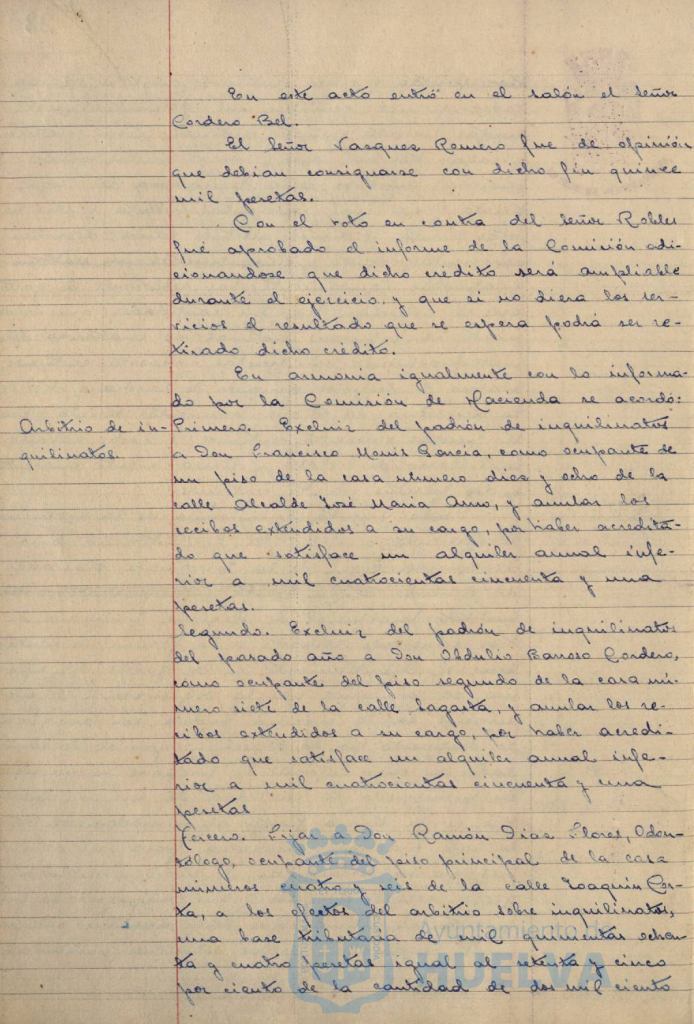 En este acto entró en el salón el Señor
Cordero Bel.
El Señor Vazquez Romero fue de opinión
que debian consignarse con dicho fin quince
mil pesetas.
Con el voto en contra del Señor Robles
fué aprobado el informe de la Comisión adi-
cionandose que dicho crédito será ampliable
durante el ejercicio y que si no diera los ser-
vicios el resultado que se espera podrá ser re-
tirado dicho crédito.
En armonia igualmente con lo informa-
do por la Comisión de Hacienda se acordó:
Arbitrio de in-
quilinatos.
Primero. Excluir del padrón de inquilinatos
a Don Francisco Monis García, como ocupante de
un piso de la casa número diez y ocho de la
calle Alcalde José Maria Amo, y anular los
recibos extendidos a su cargo, por haber acredita-
do que satisface un alquiler anual infe-
rior a mil cuatrocientas cincuenta y una
pesetas.
Segundo. Excluir del padrón de inquilinatos
del pasado año a Don Obdulio Barroso Cordero,
como ocupante del piso segundo de la casa nú-
mero siete de la calle Sagasta, y anular los re-
cibos extendidos a su cargo, por haber acredi-
tado que satisface un alquiler anual infe-
rior a mil cuatrocientas cincuenta y una
pesetas
Tercero. Fijar a Don Ramón Diaz Flores, Odon-
tólogo, ocupante del piso principal de la casa
números cuatro y seis de la calle Joaquin Cos-
ta, a los efectos del arbitrio sobre inquilinatos,
una base tributaria de mil quinientas ochen-
ta y cuatro pesetas igual al setenta y cinco
por ciento de la cantidad de dos mil ciento
Ayuntamiento de
HUELVA